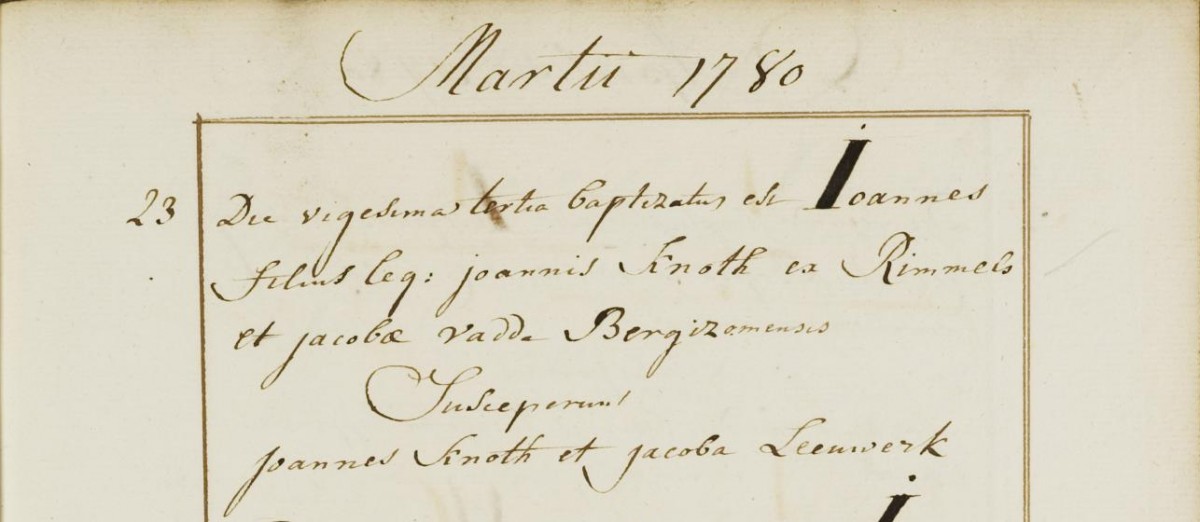 Martii 1780
23 Die vigesima tertia baptizatus est Ioannes
filius leg: joannis Knoth ex Rimmels
et jacobæ vadde Bergizomensis
Susceperunt
joannes Knoth et jacoba Leeuwerk